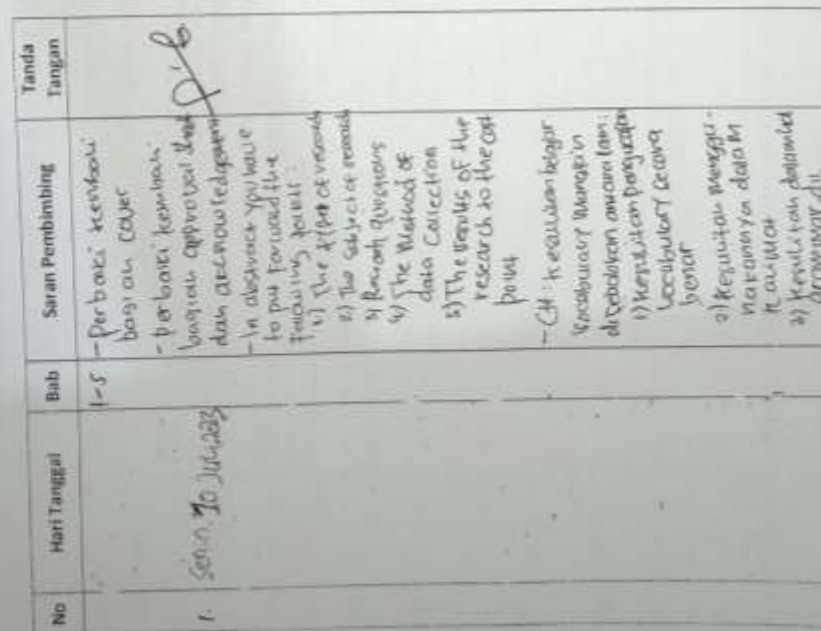 No
Hari Tanggal
Bab
Saran Pembimbing
Tanda
Tangan
1.
Senin, 10 Juli 2023
1-5
- Perbaiki kembali
bagian cover
- perbaiki kembali
bagian approval
dan acknowledgement
- In abstract you have
to put forward the
following points:
1) The type of research
2) The subject of research
3) Research questions
4) The Method of
data Collection
5) The results of the
research to the
point
- CH: Kesulitan belajar
Vocabulary Mungkin
disebabkan antara lain:
1) Kesulitan pengucapan
vocabulary secara
benar
2) Kesulitan menggu-
nakannya dalam
kalimat
3) Kesulitan dalam